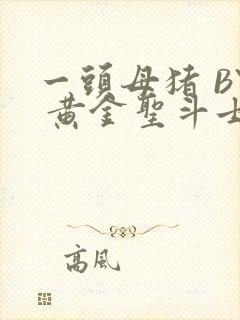 一頭母猪 B
黄金聖斗士
高風